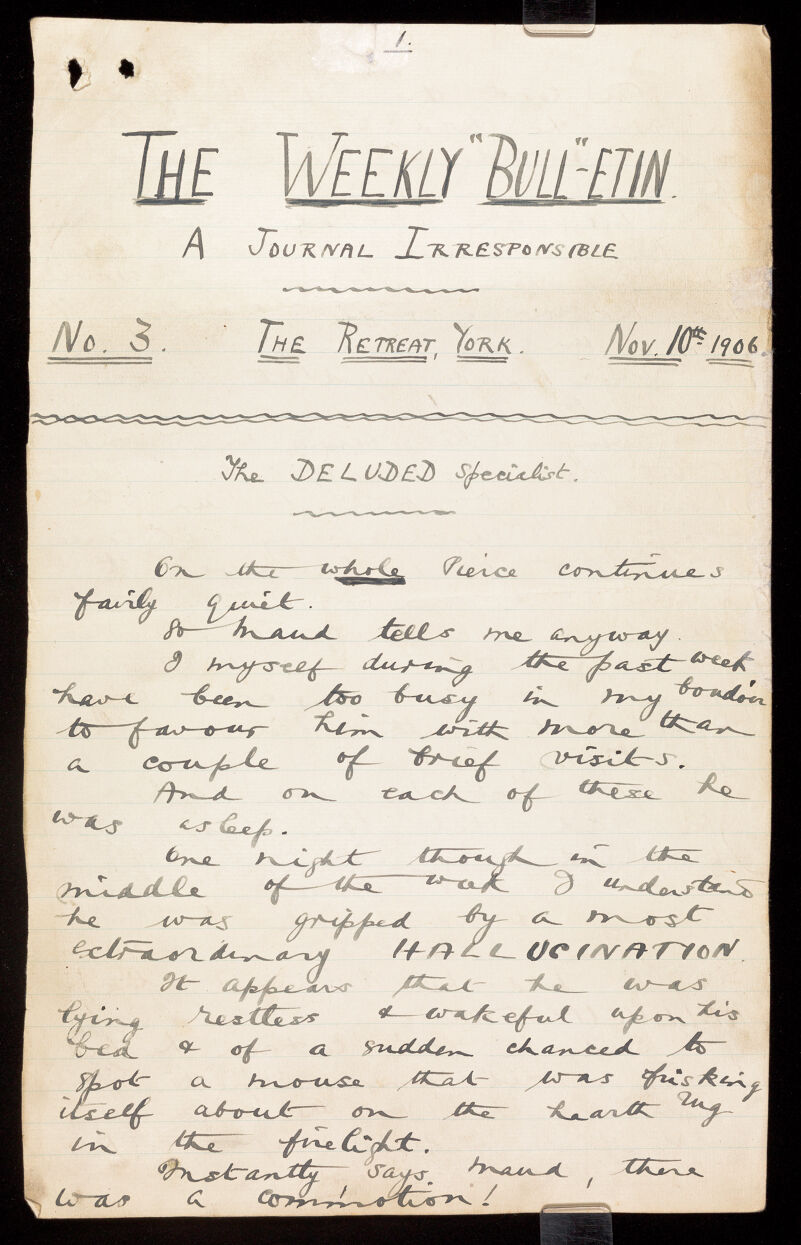 1.
THE WEEKLY "BULL"-ETIN.
A JOURNAL IRRESPONSIBLE
No. 3. THE RETREAT, YORK. Nov. 10th 1906.
The DELUDED Specialist.
On the whole Pierce continues
fairly quiet.
So Maud tells me anyway.
I myself during the past week
have been too busy in my boudoir
to favour him with more than
a couple of brief visits.
And on each of these he
was asleep.
One night though in the
middle of the week I understand
he was gripped by a most
extraordinary HALLUCINATION.
It appears that he was
lying restless & wakeful upon his
bed & of a sudden chanced to
spot a mouse that was frisking
itself about on the hearth rug
in the firelight.
Instantly says Maud, there
was a commotion!